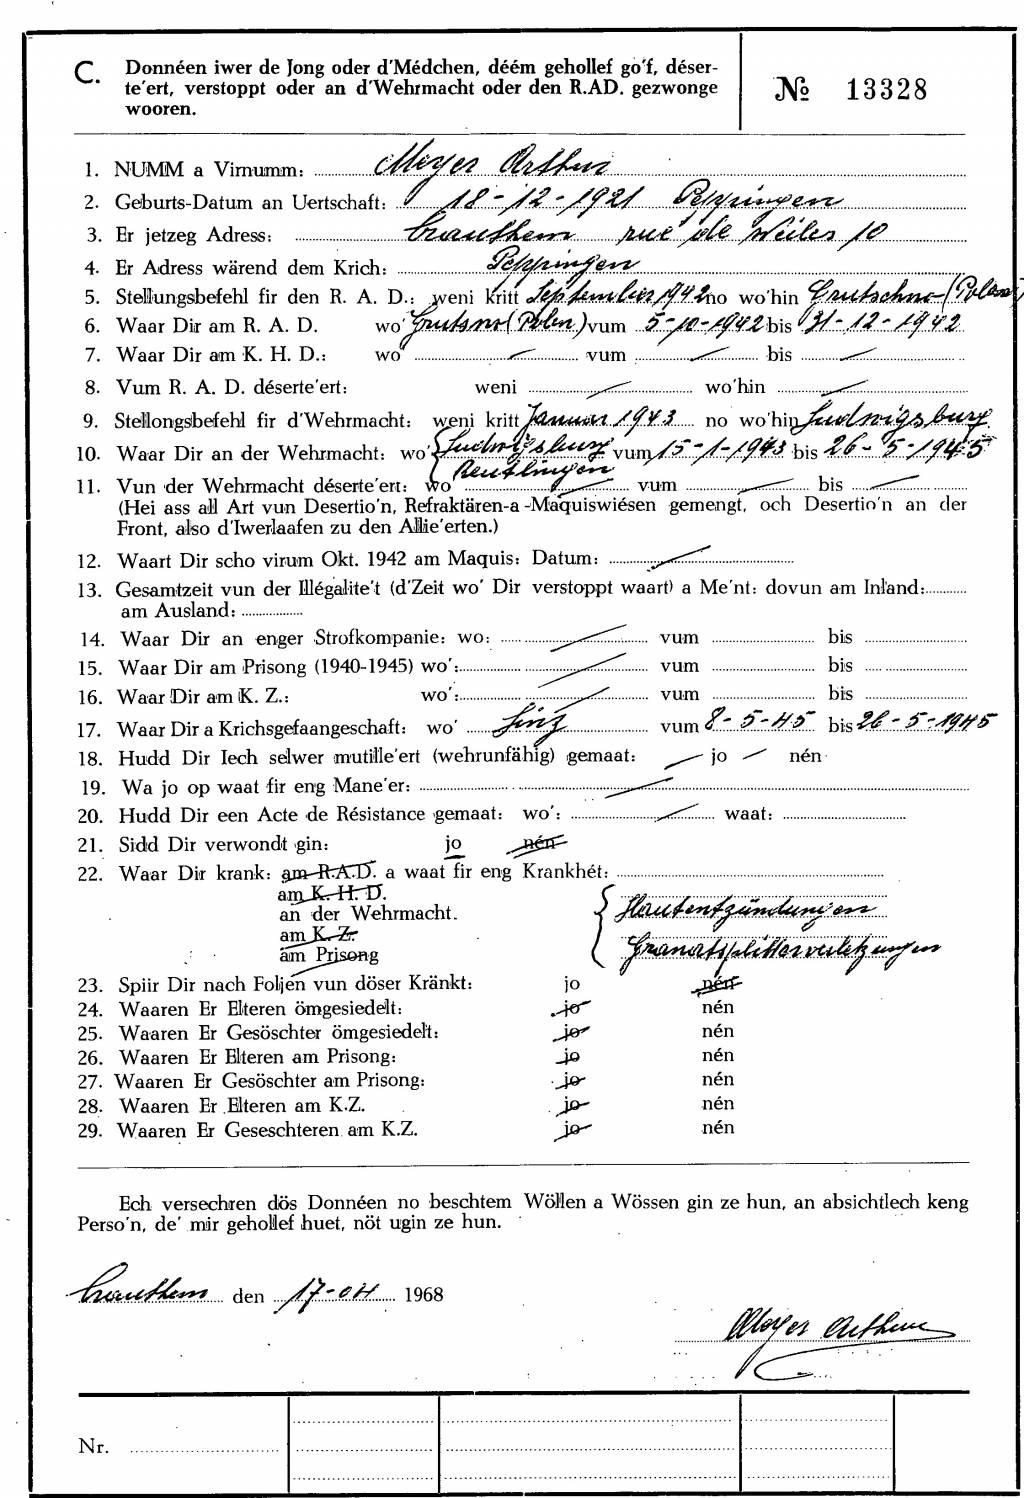 C. Donnéen iwer de Jong oder d'Médchen, déém gehollef go'f, déser-
te'ert, verstoppt oder an d'Wehrmacht oder den R.AD. gezwonge
wooren.
№ 13328
1. NUMM a Virnumm: Meyer Arthur
2. Geburts-Datum an Uertschaft: 18-12-1921 Peppingen
3. Er jetzeg Adress: Crauthem rue de Weiler 10
4. Er Adress wärend dem Krich: Peppingen
5. Stellungsbefehl fir den R. A. D.: weni kritt September 1942 no wo'hin Grutschno (Polen)
6. Waar Dir am R. A. D. wo' Grutsno (Polen) vum 5-10-1942 bis 31-12-1942
7. Waar Dir am K. H. D.: wo' vum bis
8. Vum R. A. D. déserte'ert: weni wo'hin
9. Stellongsbefehl fir d'Wehrmacht: weni kritt Januar 1943 no wo'hin Ludwigsburg
10. Waar Dir an der Wehrmacht: wo' Ludwigsburg vum 15-1-1943 bis 26-5-1945
Reutlingen
11. Vun der Wehrmacht déserte'ert: wo vum bis
(Hei ass all Art vun Desertio'n, Refraktären-a-Maquiswiésen gemengt, och Desertio'n an der
Front, also d'Iwerlaafen zu den Allie'erten.)
12. Waart Dir scho virum Okt. 1942 am Maquis: Datum:
13. Gesamtzeit vun der Illégalite't (d'Zeit wo' Dir verstoppt waart) a Me'nt: dovun am Inland:
am Ausland:
14. Waar Dir an enger Strofkompanie: wo: vum bis
15. Waar Dir am Prisong (1940-1945) wo': vum bis
16. Waar Dir am K. Z.: wo': vum bis
17. Waar Dir a Krichsgefaangeschaft: wo' Linz vum 8-5-45 bis 26-5-1945
18. Hudd Dir Iech selwer mutille'ert (wehrunfähig) gemaat: jo nén
19. Wa jo op waat fir eng Mane'er:
20. Hudd Dir een Acte de Résistance gemaat: wo': waat:
21. Sidd Dir verwondt gin: jo nén
22. Waar Dir krank: am R.A.D. a waat fir eng Krankhét:
am K. H. D.
an der Wehrmacht. Hautentzündungen
am K. Z.
am Prisong Granatsplitterverletzungen
23. Spiir Dir nach Foljen vun döser Kränkt: jo nén
24. Waaren Er Elteren ömgesiedelt: jo nén
25. Waaren Er Gesöschter ömgesiedelt: jo nén
26. Waaren Er Elteren am Prisong: jo nén
27. Waaren Er Gesöschter am Prisong: jo nén
28. Waaren Er Elteren am K.Z. jo nén
29. Waaren Er Geseschteren am K.Z. jo nén
Ech versechren dös Donnéen no beschtem Wöllen a Wössen gin ze hun, an absichtlech keng
Perso'n, de' mir gehollef huet, nöt ugin ze hun.
Crauthem den 17-04 1968
Meyer Arthur
Nr.